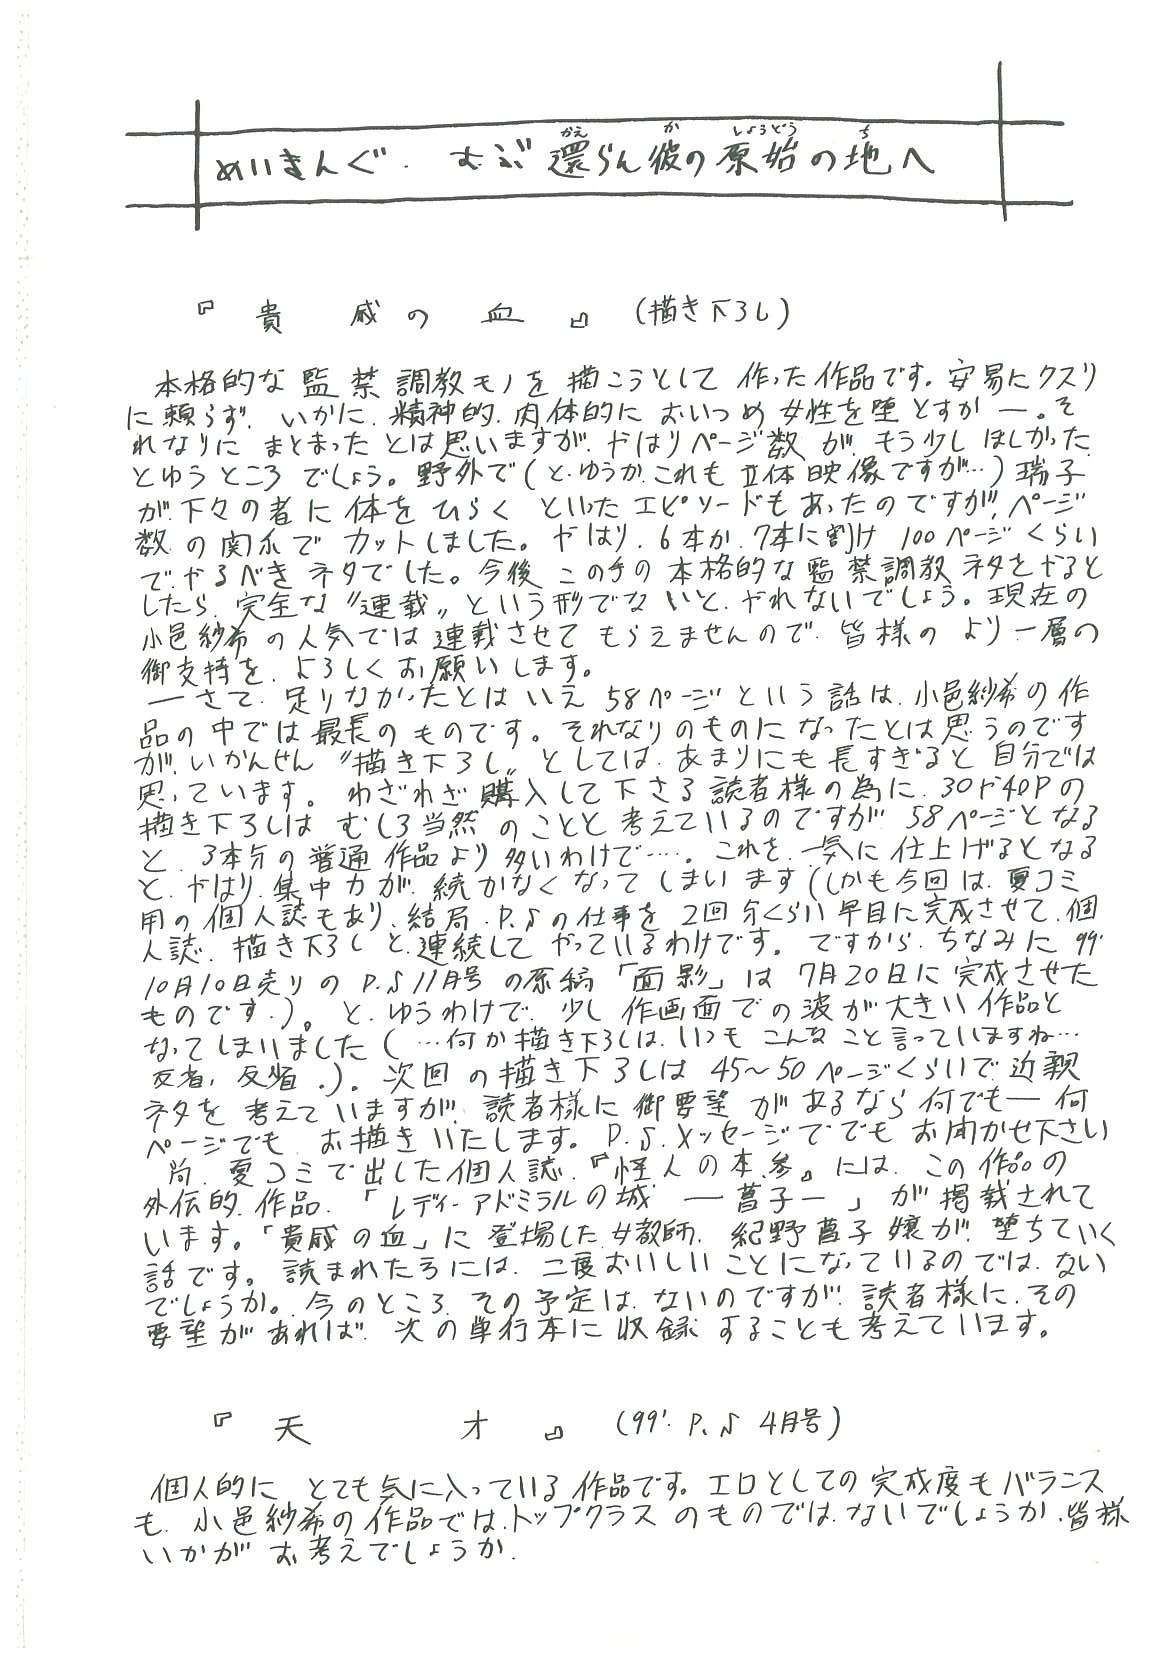 めいきんぐ. おぶ 還らん彼の原始の地へ
かえ か しょうどう ち
『貴戚の血』(描き下ろし)
本格的な監禁調教モノを描こうとして作った作品です。安易にクスリ
に頼らず、いかに、精神的、肉体的においつめ女性を堕とすか―。そ
れなりにまとまったとは思いますが、やはりページ数が、もう少しほしかった、
とゆうところでしょう。野外で(と、ゆうか、これも立体映像ですが…)瑞子
が、下々の者に体をひらくといったエピソードもあったのですが、ページ
数の関係でカットしました。やはり、6本か、7本に割け100ページくらい
で、やるべきネタでした。今後この手の本格的な監禁調教ネタをやると
したら、完全な〝連載〟という形でないと、やれないでしょう。現在の
小邑紗希の人気では連載させてもらえませんので、皆様のより一層の
御支持を、よろしくお願いします。
―さて、足りなかったとはいえ58ページという話は、小邑紗希の作
品の中では最長のものです。それなりのものになったとは思うのです
が、いかんせん〝描き下ろし〟としては、あまりにも長すぎると自分では
思っています。わざわざ購入して下さる読者様の為に、30や40Pの
描き下ろしはむしろ当然のことと考えているのですが58ページとなる
と、3本分の普通作品より多いわけで……。これを、一気に仕上げるとなる
と、やはり、集中力が、続かなくなってしまいます(しかも今回は、夏コミ
用の個人誌もあり、結局、P.♪の仕事を2回分くらい早目に完成させて、個
人誌、描き下ろしと、連続してやっているわけです。ですから、ちなみに99'
10月10日売りのP.♪11月号の原稿「面影」は7月20日に完成させた
ものです.)。と、ゆうわけで、少し作画面での波が大きい作品と
なってしまいました(…何か描き下ろしは、いつもこんなこと言っていますね…
反省、反省.)。次回の描き下ろしは45〜50ページくらいで近親
ネタを考えていますが、読者様に御要望があるなら何でも―何
ページでも、お描きいたします。P.♪.メッセージででもお聞かせ下さい
尚、夏コミで出した個人誌、『怪人の本.参』には、この作品の
外伝的、作品、「レディーアドミラルの城 ―菖子―」が掲載されて
います。「貴戚の血」に登場した女教師、紀野菖子嬢が、堕ちていく
話です。読まれた方には、二度おいしいことになっているのでは、ない
でしょうか。今のところ、その予定は、ないのですが、読者様に、その
要望があれば、次の単行本に収録することも考えています。
『天才』(99'. P.♪ 4月号)
個人的にとても気に入っている作品です。エロとしての完成度もバランス
も、小邑紗希の作品では、トップクラスのものでは、ないでしょうか、皆様
いかがお考えでしょうか.